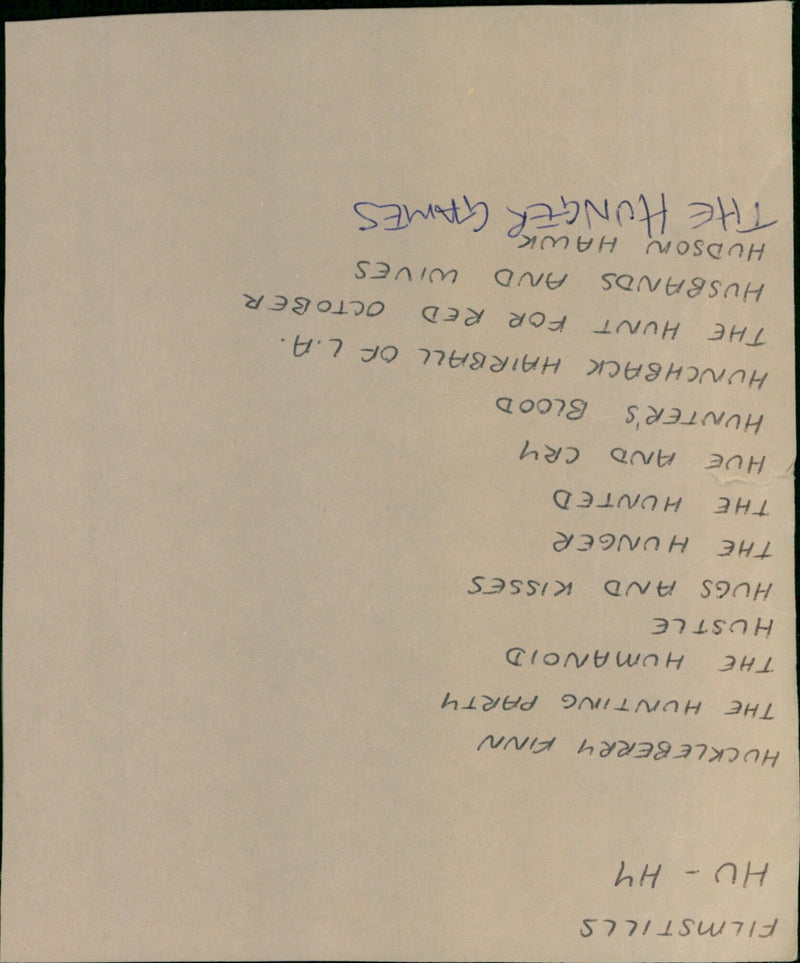 FILMSTILLS
HU - HY
HUCKLEBERRY FINN
THE HUNTING PARTY
THE HUMANOID
HUSTLE
HUGS AND KISSES
THE HUNGER
THE HUNTED
HUE AND CRY
HUNTER'S BLOOD
HUNCHBACK HAIRBALL OF L.A.
THE HUNT FOR RED OCTOBER
HUSBANDS AND WIVES
HUDSON HAWK
THE HUNGER GAMES